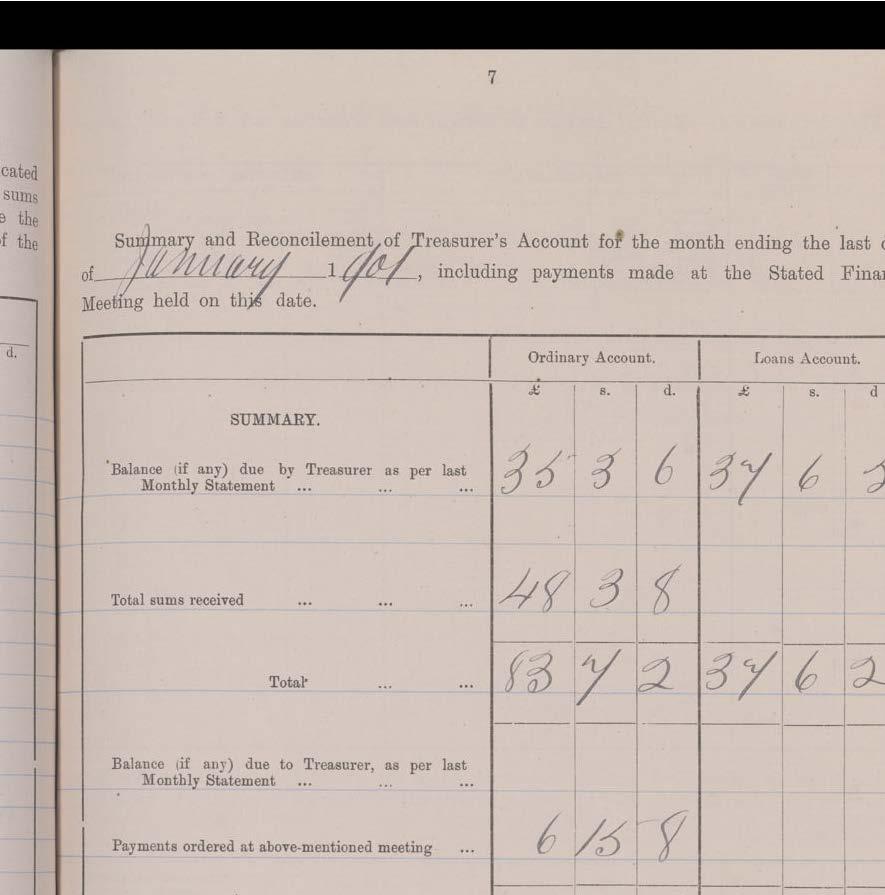 7
cated
sums
e the
f the
d.
Summary and Reconcilement of Treasurer's Account for the month ending the last
of January 1901, including payments made at the Stated Finan
Meeting held on this date.
Ordinary Account. Loans Account.
£ s. d. £ s. d
SUMMARY.
Balance (if any) due by Treasurer as per last
Monthly Statement ... ... ... 35 3 6 37 6 2
Total sums received ... ... ... 48 3 8
Total ... ... 83 7 2 37 6 2
Balance (if any) due to Treasurer, as per last
Monthly Statement ... ... ...
Payments ordered at above-mentioned meeting ... 6 15 8